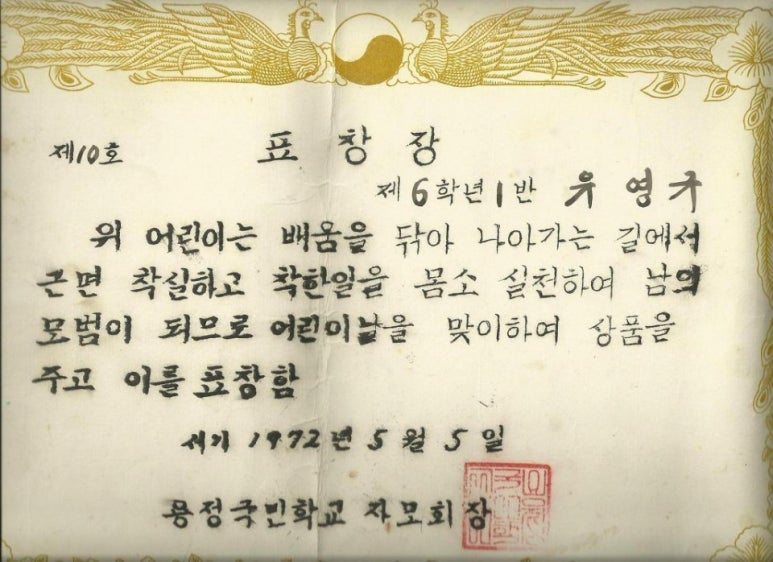 제10호 표창장
제6학년1반 유영규
위 어린이는 배움을 닦아 나아가는 길에서
근면 착실하고 착한일을 몸소 실천하여 남의
모범이 되므로 어린이날을 맞이하여 상품을
주고 이를 표창함
서기 1972년 5월 5일
용정국민학교 자모회장